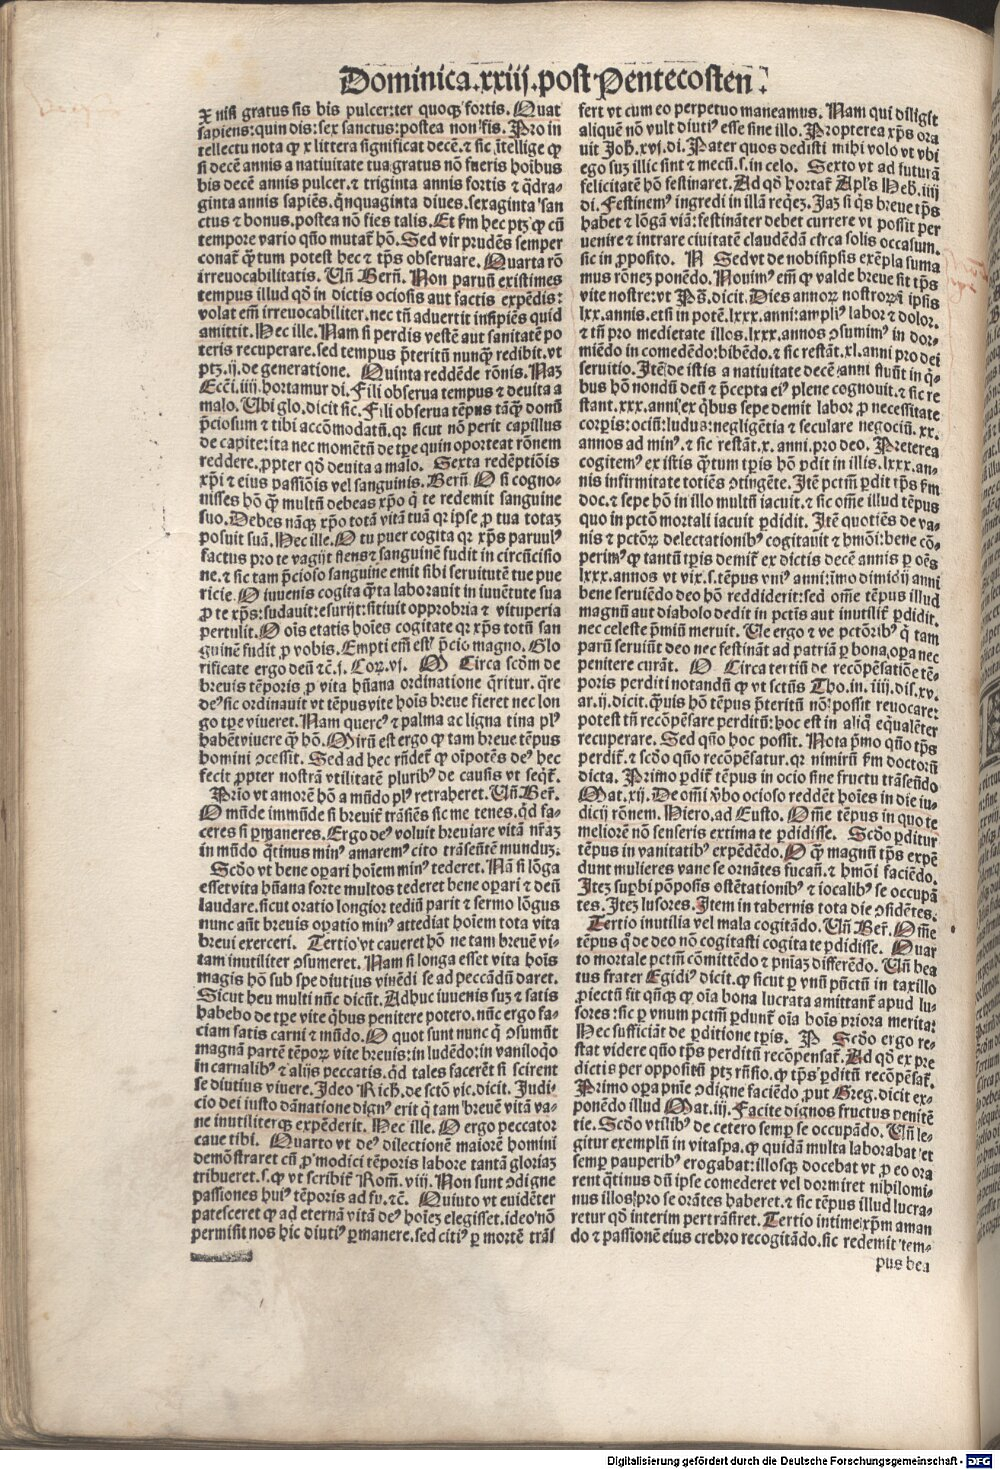 Dominica.xxiij.post Pentecosten.
X nisi gratus sis bis pulcer:ter quoqꝫ fortis. Quat
sapiens:quin dis:sex sanctus:postea non fis. Pro in
tellectu nota ꝙ x littera significat decē.⁊ sic ītellige ꝙ
si decē annis a natiuitate tua gratus nō fueris hoībus
bis decē annis pulcer.⁊ triginta annis fortis ⁊ q̄dra-
ginta annis sapiēs.q̄nquaginta diues.sexaginta san
ctus ⁊ bonus.postea nō fies talis. Et ẜm hec ptꝫ ꝙ cū
tempore vario quo mutat̄ hō. Sed vir prudēs semper
conat̄ q̄ꝫtum potest hec ⁊ tp̄s obseruare. Quarta rō
irreuocabilitatis. Vn̄ Bern̄. Non paruū existimes
tempus illud qd̓ in dictis ociosis aut factis expēdis:
volat em̄ irreuocabiliter.nec tn̄ aduertit insipiēs quid
amittit. Hec ille. Nam si perdis vestē aut sanitatē po
teris recuperare.sed tempus p̄teritū nunqꝫ redibit.vt
ptꝫ.ij.de generatione. Quinta reddēde rōnis. Naꝫ
Ecc̄i.iiij.hortamur di. Fili obserua tempus ⁊ deuita a
malo. Vbi glo.dicit sic. Fili obserua tēpus tāq̄ꝫ donū
p̄ciosum ⁊ tibi accōmodatū.qꝛ sicut nō perit capillus
de capite:ita nec momētū de tp̄e quin oporteat rōnem
reddere.ꝓpter qd̓ deuita a malo. Sexta redēptiōis
xp̄i ⁊ eius passiōis vel sanguinis. Bern̄ O si cogno-
uisses hō q̄ꝫ multū debeas xp̄o q̓ te redemit sanguine
suo. Debes nāqꝫ xp̄o totā vitā tuā qꝛ ipse ꝓ tua totaꝫ
posuit suā. Hec ille. O tu puer cogita qꝛ xp̄s paruulꝰ
factus pro te vagijt flens ⁊ sanguinē fudit in circūcisio
ne.⁊ sic tam p̄cioso sanguine emit sibi seruitutē tue pue
ricie. O iuuenis cogita q̄ꝫta laborauit in iuuētute sua
ꝓ te xp̄s:sudauit:esurijt:sitiuit opprobria ⁊ vituperia
pertulit. O oīs etatis hoīes cogitate qꝛ xp̄s totū san
guinē fudit ꝓ vobis. Empti em̄ estꝭ p̄cio magno. Glo
rificate ergo deū ⁊c̄.j. Coꝝ.vj. O Circa scd̓m de
breuis tēporis ꝓ vita hūana ordinatione q̄ritur. q̄re
deꝰ sic ordinauit vt tēpus vite hoīs breue fieret nec lon
go tp̄e viueret. Nam quercꝰ ⁊ palma ac ligna tina plꝰ
habēt viuere q̄ꝫ hō. Mirū est ergo ꝙ tam breue tēpus
homini ꝯcessit. Sed ad hec rn̄det̄ ꝙ oīpotēs deꝰ hec
fecit ꝓpter nostrā vtilitatē pluribꝰ de causis vt seq̄t̄.
Prīo vt amorē hō a mūdo plꝰ retraheret. Vn̄ Ber̄.
O mūde immūde si breuit̄ trāsiēs sic me tenes.qd̓ fa-
ceres si ꝑmaneres. Ergo deꝰ voluit breuiare vitā nr̄aꝫ
in mūdo q̓tinus minꝰ amarem cito trāseūtē munduꝫ.
Scd̓o vt bene oꝑari hoīem minꝰ tederet. Nā si lōga
esset vita hūana forte multos tederet bene oꝑari ⁊ deū
laudare.sicut oratio longior tediū parit ⁊ sermo lōgus
nunc aūt breuis oꝑatio minꝰ attediat hoīem tota vita
breui exerceri. Tertio vt caueret hō ne tam breuē vi-
tam inutiliter ꝯsumeret. Nam si longa esset vita hoīs
magis hō sub spe diutius viuēdi se ad peccādū daret.
Sicut heu multi nūc dicūt. Adhuc iuuenis suꝫ ⁊ satis
habebo de tp̄e vite q̓bus penitere potero.nūc ergo fa-
ciam satis carni ⁊ mūdo. O quot sunt nunc q̓ ꝯsumūt
magnā partē tēpoꝝ vite breuis:in ludēdo:in vaniloq̓o
in carnalibꝰ ⁊ alijs peccatis.qd̓ tales facerēt si scirent
se diutius viuere. Ideo Rich. de scto vic.dicit. Judi-
cio dei iusto dānatione dignꝰ erit q̓ tam breuē vitā va-
ne inutiliterqꝫ expēderit. Hec ille. O ergo peccator
caue tibi. Quarto vt deꝰ dilectionē maiorē homini
demōstraret cū ꝓ modici tēporis labore tantā gloriaꝫ
tribueret.s.ꝙ vt scribit̄ Rom̄.viij. Non sunt ꝯdigne
passiones huiꝰ tēporis ad fu.⁊c. Quinto vt euidēter
patesceret ꝙ ad eternā vitā deꝰ hoīeꝫ elegisset.ideo nō
permisit nos hic diutiꝰ ꝑmanere.sed citiꝰ ꝑ mortē trās
fert vt cum eo perpetuo maneamus. Nam qui diligit
aliquē nō vult diutiꝰ esse sine illo. Propterea xp̄s ora
uit Joh̄.xvj.di. Pater quos dedisti mihi volo vt vbi
ego suꝫ illic sint ⁊ mecū.s.in celo. Sexto vt ad futurā
felicitatē hō festinaret. Ad qd̓ hortat̄ Apl̓s Heb̄.iiij
di. Festinemꝰ ingredi in illā req̓eꝫ. Jaꝫ si q̓s breue tp̄s
habet ⁊ lōgā viā:festināter debet currere vt possit per
uenire ⁊ intrare ciuitatē claudēdā circa solis occasum.
sic in ꝓposito. N Sed vt de nobisipsis exēpla suma
mus rōneꝫ ponēdo. Nouimꝰ em̄ ꝙ valde breue sit tp̄s
vite nostre:vt Ps̄.dicit. Dies annoꝝ nostroꝝ ī ipsis
lxx.annis.etsi in potē.lxxx.anni:ampliꝰ labor ⁊ dolor.
⁊ tn̄ pro medietate illos.lxxx.annos ꝯsumimꝰ in dor-
miēdo in comedēdo:bibēdo.⁊ sic restāt.xl.anni pro dei
seruitio. Itē de istis a natiuitate decē anni fluūt in q̓-
bus hō nondū deū ⁊ p̄cepta eiꝰ plene cognouit.⁊ sic re
stant.xxx.anni ex q̓bus sepe demit labor ꝓ necessitate
corꝑis:ociū:ludus:negligētia ⁊ seculare negociū.xx.
annos ad minꝰ.⁊ sic restāt.x.anni.pro deo. Preterea
cogitemꝰ ex istis q̄ꝫtum tꝑis hō ꝑdit in illis.lxxx.an-
nis infirmitate totiēs ꝯtingēte. Itē pctm̄ ꝑdit tp̄s ẜm
doc.⁊ sepe hō in illo multū iacuit.⁊ sic om̄e illud tēpus
quo in pctō mortali iacuit ꝑdidit. Itē quotiēs de va-
nis ⁊ pctōꝝ delectationibꝰ cogitauit ⁊ hmōi:bene cō-
perimꝰ ꝙ tantū tꝑis demit̄ ex dictis decē annis ꝑ oēs
lxxx.annos vt vix.s.tēpus vniꝰ anni:īmo dimidij anni
bene seruiēdo deo hō reddiderit:sed om̄e tēpus illud
magnū aut diabolo dedit in pctīs aut inutilit̄ ꝑdidit.
nec celeste p̄miū meruit. Ve ergo ⁊ ve pctōribꝰ q̓ tam
parū seruiūt deo nec festināt ad patriā ꝑ bona oꝑa nec
penitere curāt. O Circa tertiū de recōpēsatiōe tē-
poris perditi notandū ꝙ vt sctūs Tho.in.iiij.dis.xv.
ar.ij.dicit.q̄ꝫuis hō tēpus p̄teritū nō possit reuocare:
potest tn̄ recōpēsare perditū:hoc est in aliq̓ eq̄ualēter
recuperare. Sed quo hoc possit. Nota p̄mo quo tp̄s
perdit̄.⁊ scd̓o quo recōpēsatur.qꝛ nimirū ẜm doctorū
dicta. Primo ꝑdit̄ tēpus in ocio sine fructu trāseūdo
Mat.xij. De om̄i v̓bo ocioso reddēt hoīes in die iu-
dicij rōnem. Hiero.ad Eusto. Om̄e tēpus in quo te
meliorē nō senseris extima te ꝑdidisse. Scd̓o ꝑditur
tēpus in vanitatibꝰ expēdēdo. O q̄ꝫ magnū tp̄s expē
dunt mulieres vane se ornātes fucan̄.⁊ hmōi faciēdo.
Iteꝫ suꝑbi pōposis ostētationibꝰ ⁊ iocalibꝰ se occupā
tes. Iteꝫ lusores. Item in tabernis tota die ꝯsidētes.
Tertio inutilia vel mala cogitādo. Vn̄ Ber̄. Om̄e
tēpus q̓ de deo nō cogitasti cogita te ꝑdidisse. Quar
to mortale pctm̄ cōmittēdo ⁊ pn̄iaꝫ differēdo. Vn̄ bea
tus frater Egidiꝰ dicit.ꝙ sicut ꝑ vnū pūctū in taxillo
ꝓiectū sit qn̄qꝫ ꝙ oīa bona lucrata amittant̄ apud lu-
sores:sic ꝑ vnum pctm̄ ꝑdunt̄ oīa hoīs priora merita:
Nec sufficiat de ꝑditione tꝑis. P Scd̓o ergo re-
stat videre quo tp̄s perditū recōpensat̄. Ad qd̓ ex pre
dictis per oppositū ptꝫ rn̄sio.ꝙ tp̄s ꝑditū recōpēsat̄.
Primo oꝑa pn̄ie ꝯdigne faciēdo ꝓut Greg.dicit ex-
ponēdo illud Mat.iij. Facite dignos fructus penitē
tie. Scd̓o vtilibꝰ de cetero semꝑ se occupādo. Vn̄ le-
gitur exemplū in vitaspa.ꝙ quidā multa laborabat et
semꝑ pauperibꝰ erogabat:illosqꝫ docebat vt ꝓ eo ora
rent q̓tinus dū ipse comederet vel dormiret nihilomi-
nus illos pro se orātes haberet.⁊ sic tēpus illud lucra-
retur qd̓ interim pertrāsiret. Tertio intime xp̄m aman
do ⁊ passionē eius crebro recogitādo.sic redemit tem-
pus bea
Digitalisierung gefördert durch die Deutsche Forschungsgemeinschaft - DFG